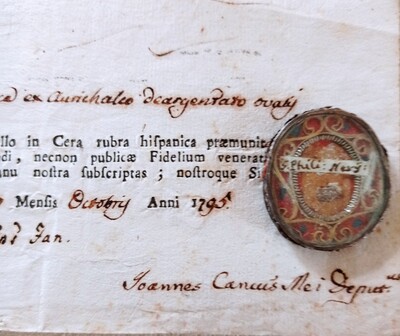 ex Aurichalco deargentato ovalj
llo in Cera rubra hispanica præmunit
di, necnon publicæ Fidelium venerat
nu nostra subscriptas; nostroque Si
Mensis Octobris Anni 1795.
S. Phili: Nerij:
Jan.
Joannes
Deput